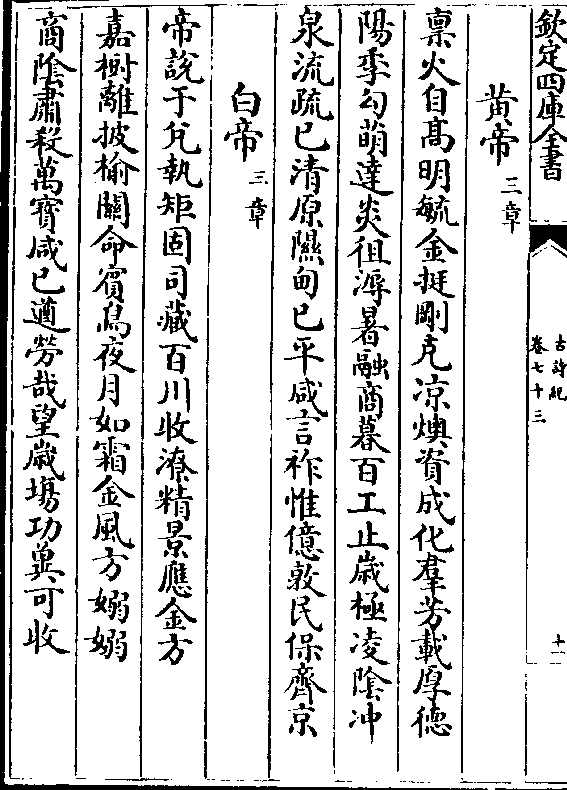 欽定四庫全書
古詩紀
卷七十三
十一
黄帝三章
稟火自髙明毓金挺剛克凉燠資成化羣芳載厚德
陽季勾萌達炎徂溽暑融商暮百工止歲極凌陰冲
泉流疏已清原隰甸已平咸言祚惟億敦民保齊京
白帝三章
帝說于兊執矩固司藏百川收潦精景應金方
嘉樹離披榆關命賓鳥夜月如霜金風方嫋嫋
商陰肅殺萬寳咸已遒勞哉望歲塲功兾可收